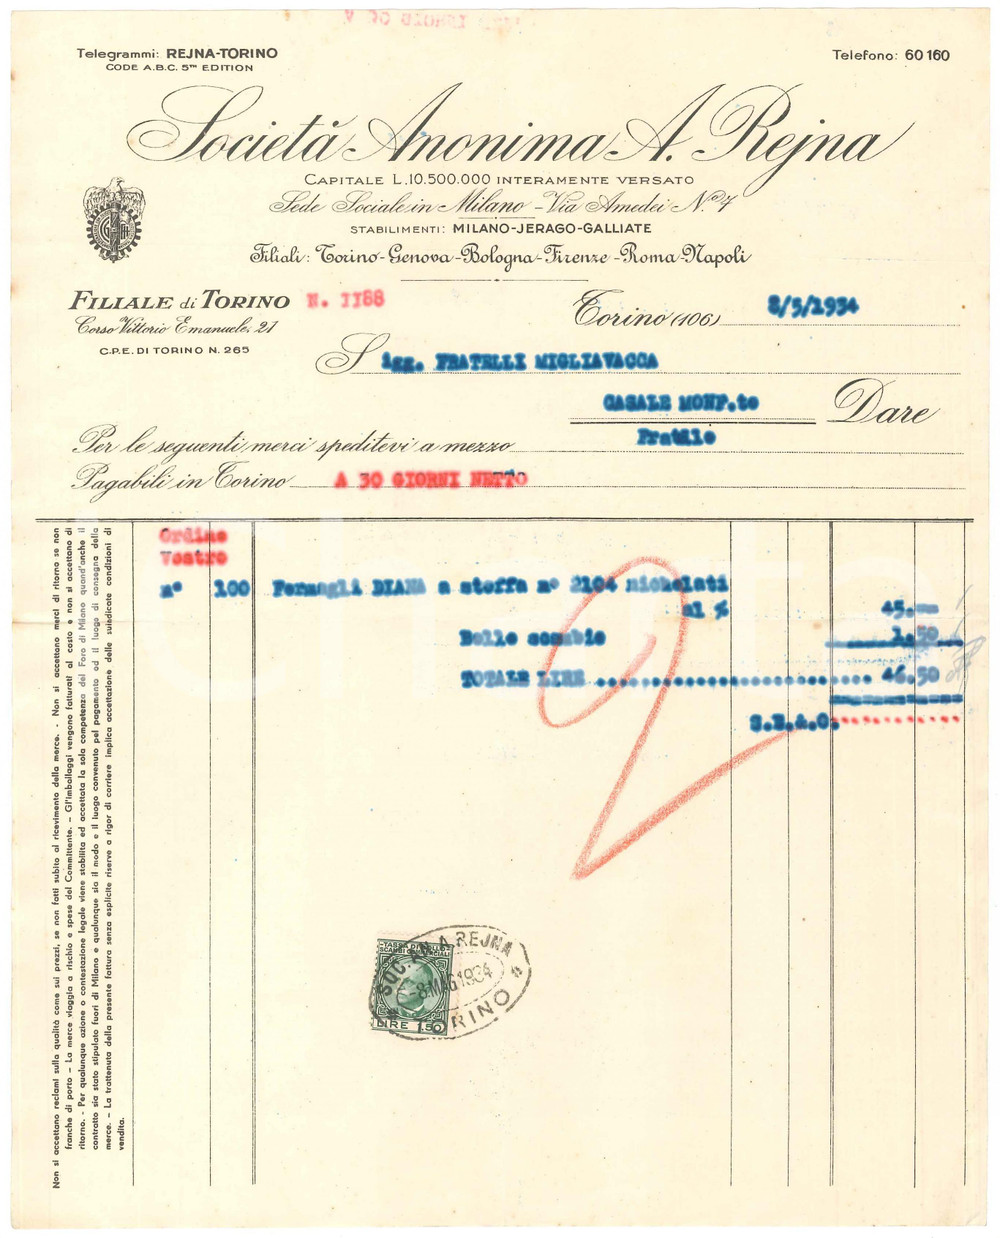 Telegrammi: REJNA-TORINO
CODE A.B.C. 5TH EDITION
Telefono: 60160
Società Anonima A. Rejna
CAPITALE L.10.500.000 INTERAMENTE VERSATO
Sede Sociale in Milano - Via Amedei N.º 7
STABILIMENTI: MILANO-JERAGO-GALLIATE
Filiali: Torino-Genova-Bologna-Firenze-Roma-Napoli
FILIALE di TORINO
N. 1188
Corso Vittorio Emanuele, 21
C.P.E. DI TORINO N. 265
Torino (106) 8/5/1934
Sigg. FRATELLI MIGLIAVACCA
CASALE MONF.to
Dare
Per le seguenti merci speditevi a mezzo
Pagabili in Torino A 30 GIORNI NETTO
Ordine
Vostro
n° 100 Fermagli DIANA a stoffa n° 2104 nichelati
al % 45.--
Bollo scambio 1.50
TOTALE LIRE 46.50
S.E.&.O.
Non si accettano reclami sulla qualità come sui prezzi, se non fatti subito al ricevimento della merce. - Non si accettano merci di ritorno se non
franche di porto - La merce viaggia a rischio e spese del Committente. - Gl'imballaggi vengono fatturati al costo e non si accettano di
ritorno. - Per qualunque azione o contestazione legale viene stabilita ed accettata la sola competenza del Foro di Milano quand'anche il
contratto sia stato stipulato fuori di Milano e qualunque sia il modo e il luogo convenuto pel pagamento ed il luogo di consegna della
merce. - La trattenuta della presente fattura senza esplicite riserve a rigor di corriere implica accettazione delle suindicate condizioni di
vendita.
TASSA DI BOLLO
SCAMBI COMMERCIALI
LIRE 1.50
SOC. AN. A. REJNA
-8 MAG 1934
TORINO